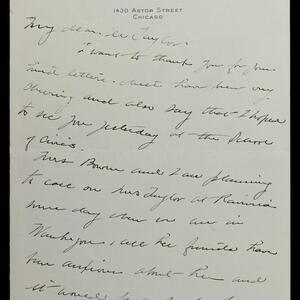 1430 ASTOR STREET
CHICAGO
My dear Mr Taylor:
I want to thank you for your
kind letter. have been very
and also say that I hoped
to see you yesterday at the
of Civics.
Mrs Bowen and I are planning
to call on Mrs Taylor at Ravinia
some day when we are in
Waukegan, all her friends have
been anxious about her and
it would